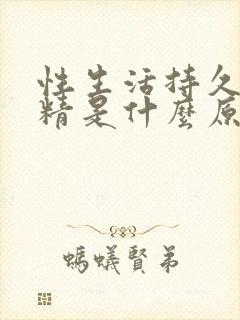 性生活持久
精是什麼原
螞蟻賢弟